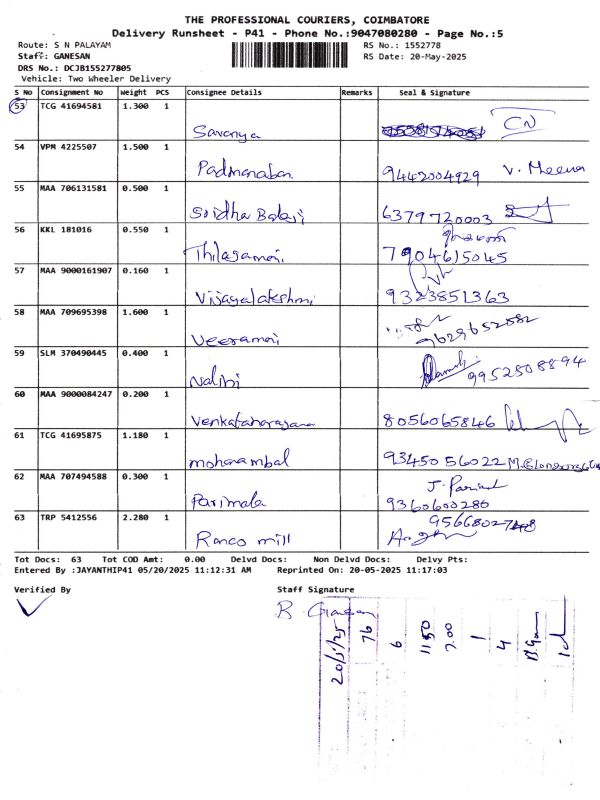 THE PROFESSIONAL COURIERS, COIMBATORE
Delivery Runsheet - P41 - Phone No.:9047080280 - Page No.:5
Route: S N PALAYAM RS No.: 1552778
Staff: GANESAN RS Date: 20-May-2025
DRS No.: DCJB155277805
Vehicle: Two Wheeler Delivery
S No Consignment No Weight PCS Consignee Details Remarks Seal & Signature
53 TCG 41694581 1.300 1
Savanya CN
54 VPM 4225507 1.500 1
Padmanaban 9442004929 V. Meena
55 MAA 706131581 0.500 1
Sridha Balaji 6379720003
56 KKL 181016 0.550 1
Thilagamani 7904615045
57 MAA 9000161907 0.160 1
Vijayalakshmi 9323851363
58 MAA 709695398 1.600 1
Veeramani 9629652582
59 SLM 370490445 0.400 1
Nalini 9952508894
60 MAA 9000084247 0.200 1
Venkatanarayana 8056065846
61 TCG 41695875 1.180 1
mohanambal 9345056022
62 MAA 707494588 0.300 1
J.
Parimala 9360600286
63 TRP 5412556 2.280 1
Ranco mill
Tot Docs: 63 Tot COD Amt: 0.00 Delvd Docs: Non Delvd Docs: Delvy Pts:
Entered By :JAYANTHIP41 05/20/2025 11:12:31 AM Reprinted On: 20-05-2025 11:17:03
Verified By Staff Signature
20/5/25
76
6
1150
7.00
1
4